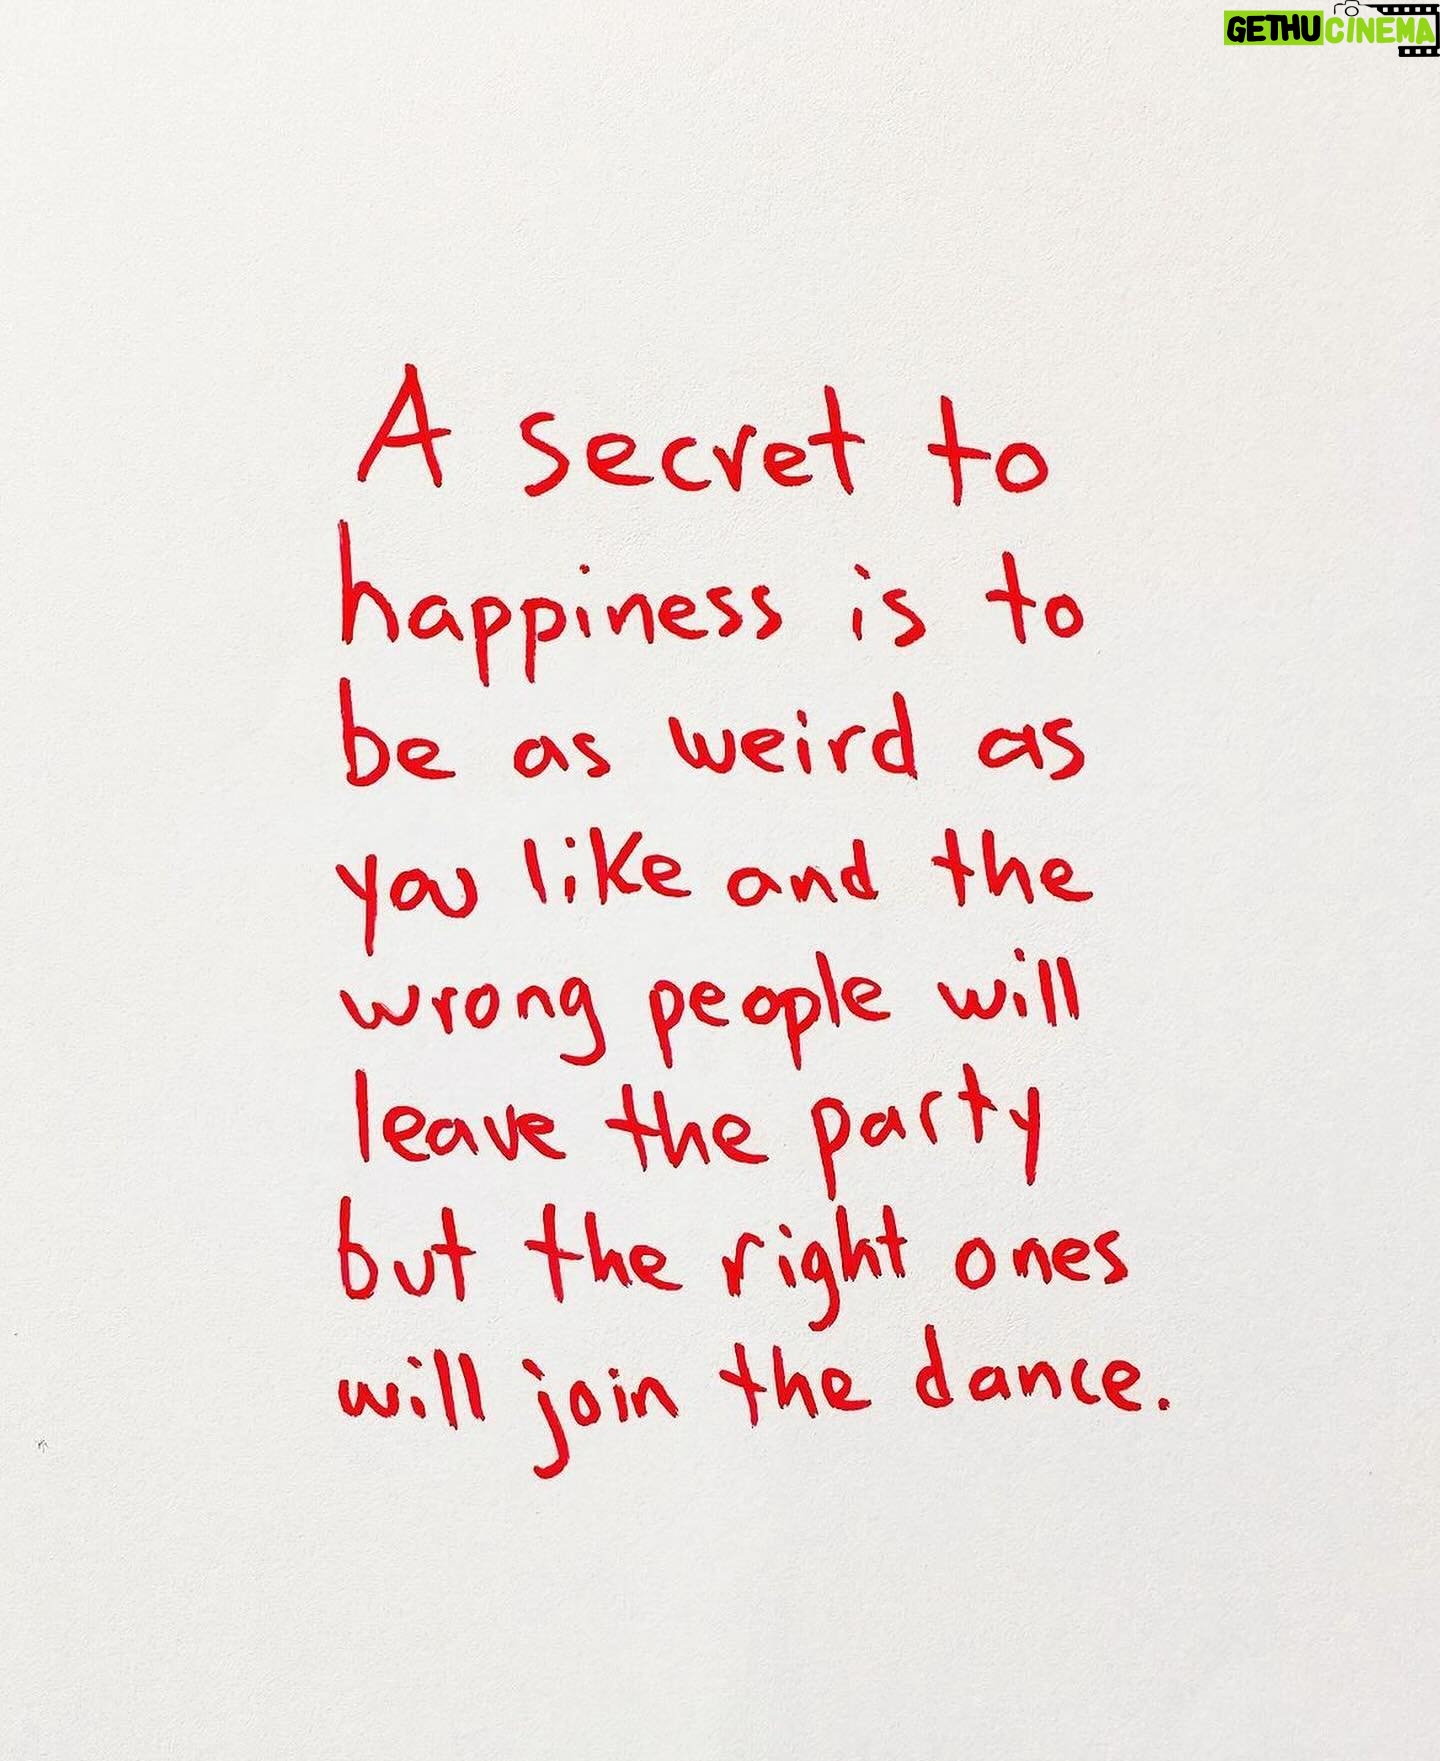 GETHUCINEMA
A secret to
happiness is to
be as weird as
you like and the
wrong people will
leave the party
but the right ones
will join the dance.